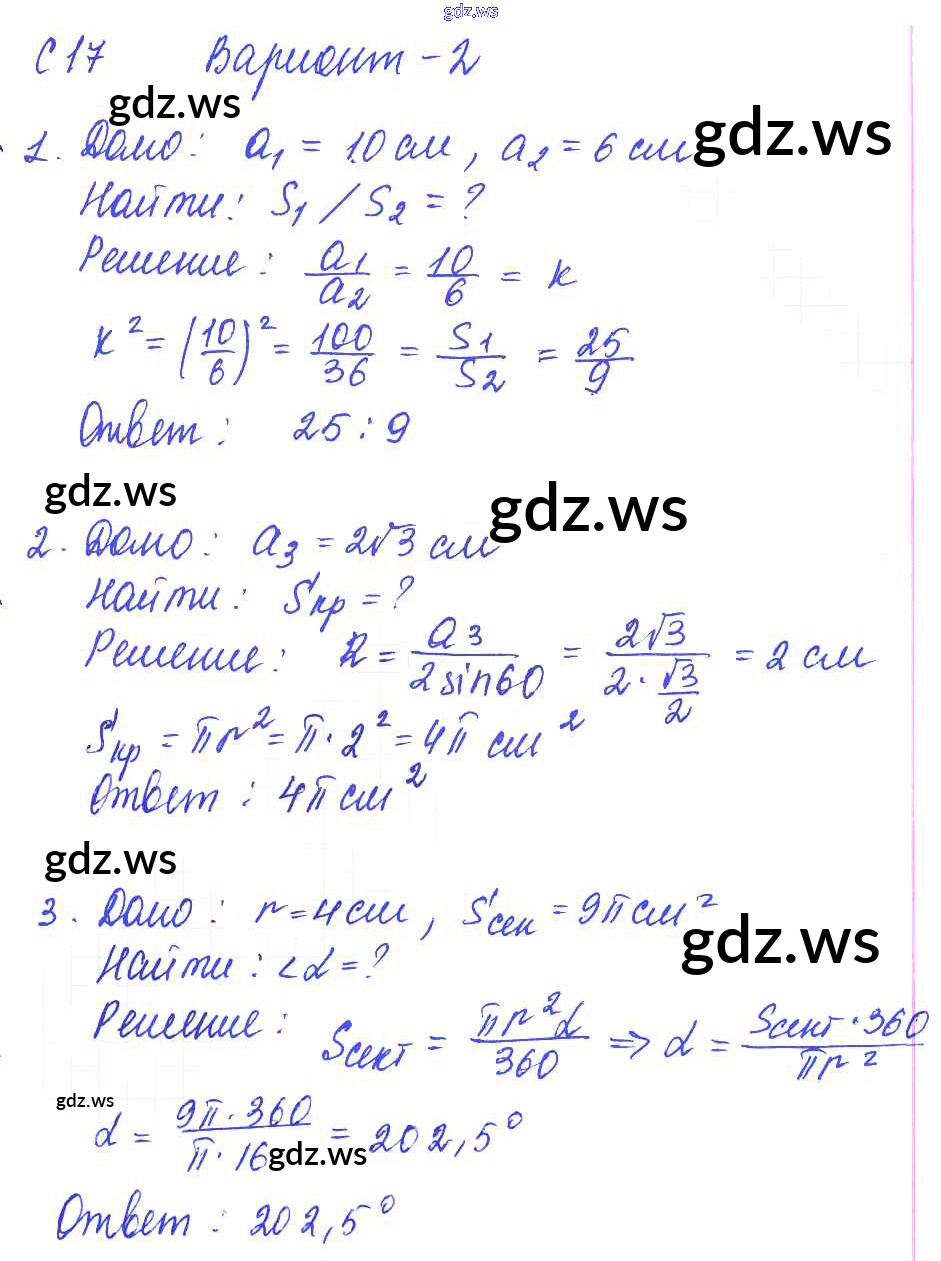 gdz.ws
С 17 Вариант - 2
gdz.ws
1. Дано: a₁ = 10 см, a₂ = 6 см gdz.ws
Найти: S₁ / S₂ = ?
Решение: a₁/a₂ = 10/6 = k
k² = (10/6)² = 100/36 = S₁/S₂ = 25/9
Ответ: 25 : 9
gdz.ws gdz.ws
2. Дано: a₃ = 2√3 см
Найти: Sкр = ?
Решение: R = a₃/(2 sin60) = 2√3/(2 · √3/2) = 2 см
Sкр = πr² = π · 2² = 4π см²
Ответ: 4π см²
gdz.ws
3. Дано: r = 4 см, Sсек = 9π см²
gdz.ws
Найти: <α = ?
Решение: Sсект = πr²α/360 => α = Sсект · 360/πr²
gdz.ws
α = 9π · 360/π · 16 = 202,5°
gdz.ws
Ответ: 202,5°